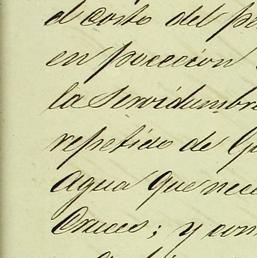 el costo del
en poceción
la Servidumbre
repetido de
Agua que
Cruces; y con